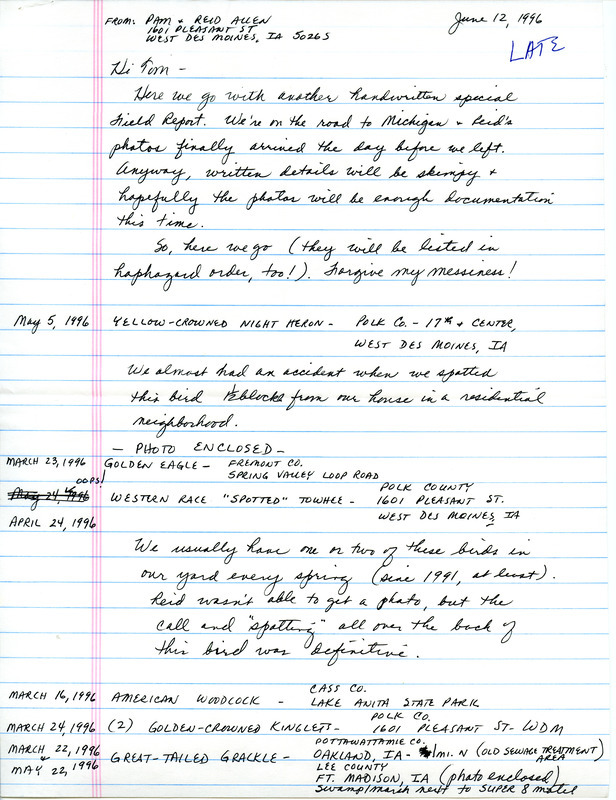 FROM: PAM & REID ALLEN June 12, 1996
1601 PLEASANT ST
WEST DES MOINES, IA 50265
LATE
Hi Tom -
Here we go with another handwritten special
Field Report. We're on the road to Michigan & Reid's
photos finally arrived the day before we left.
Anyway, written details will be skimpy &
hopefully the photos will be enough documentation
this time.
So, here we go (they will be listed in
haphazard order, too!). Forgive my messiness!
May 5, 1996 YELLOW-CROWNED NIGHT HERON - POLK CO. - 17th & CENTER,
WEST DES MOINES, IA
We almost had an accident when we spotted
this bird blocks from our house in a residential
neighborhood.
- PHOTO ENCLOSED -
MARCH 23, 1996 GOLDEN EAGLE - FREMONT CO.
SPRING VALLEY LOOP ROAD
OOPS!
May 24, 1996 WESTERN RACE "SPOTTED" TOWHEE - POLK COUNTY
1601 PLEASANT ST.
APRIL 24, 1996 WEST DES MOINES, IA
We usually have one or two of these birds in
our yard every spring (since 1991, at least).
Reid wasn't able to get a photo, but the
call and "spotting" all over the back of
this bird was definitive.
MARCH 16, 1996 AMERICAN WOODCOCK - CASS CO.
LAKE ANITA STATE PARK
MARCH 24, 1996 (2) GOLDEN-CROWNED KINGLETS - POLK CO.
1601 PLEASANT ST - WDM
MARCH 22, 1996 GREAT-TAILED GRACKLE - POTTAWATTAMIE CO.
OAKLAND, IA - 1 mi. N (OLD SEWAGE TREATMENT AREA)
& MAY 22, 1996 LEE COUNTY
FT. MADISON, IA (photo enclosed)
Swamp/marsh next to SUPER 8 motel